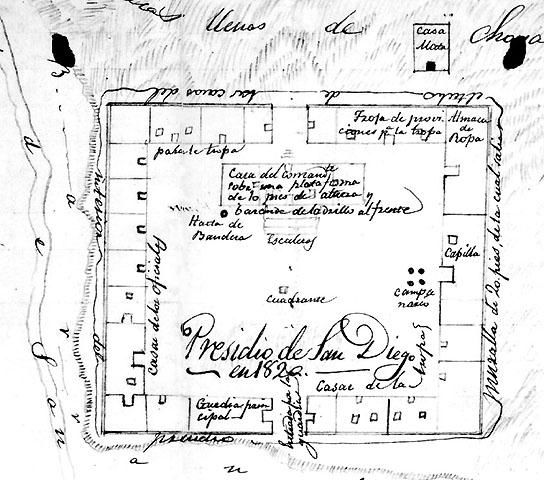 llenas de
Casa
Mata
para la tropa
Tropa de provi
ciones pª la tropa
Almacen
de
Ropa
Casa del Comandte
sobre una plataforma
de 10 pies de altura y
barandе de ladrillo al frente
Hasta de
Bandera
Escaleras
Capilla
Campa
nario
Cuadrante
Casas de los oficiales
muralla de 20 pies, de la cual
Presidio de San Diego
en 1820.
Casas de la tropa
Guardia prin
cipal
Entrada pª la
guardia
presidio